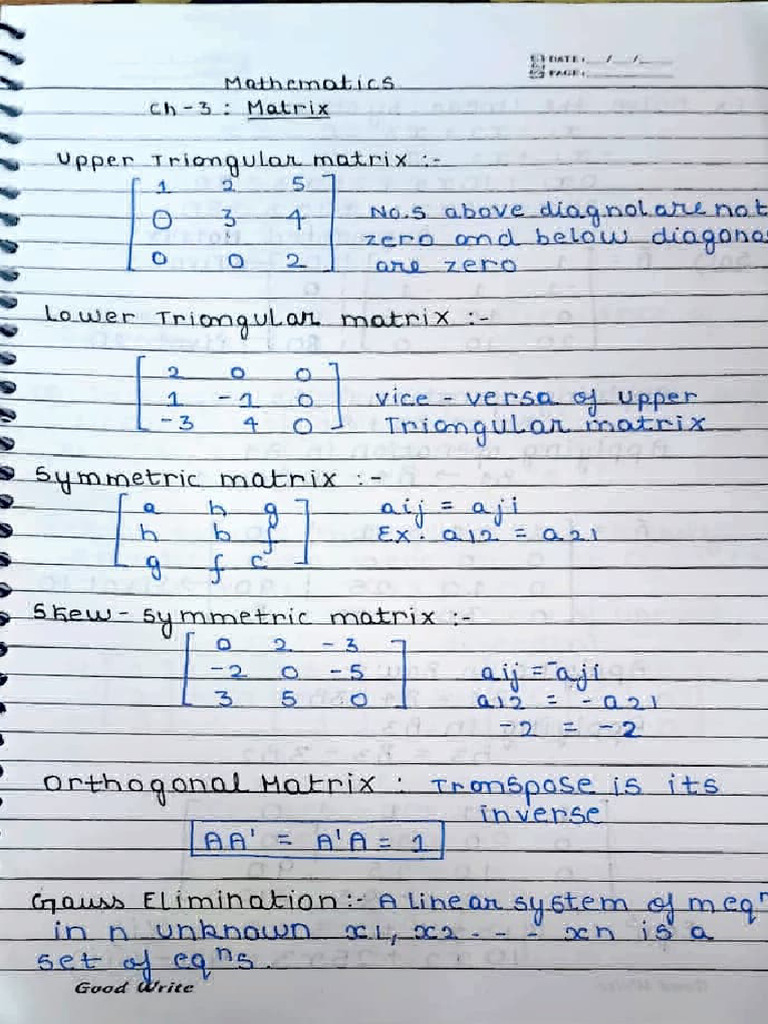 DATE: __/__/____
PAGE: ________
Mathematics
Ch-3 : Matrix
Upper Triangular matrix :-
1 2 5
0 3 4 No.s above diagnol are not
zero and below diagona
0 0 2 are zero
Lower Triangular matrix :-
2 0 0
1 -1 0 vice-versa of upper
-3 4 0 Triangular matrix
Symmetric matrix :-
a h g aij = aji
h b f Ex. a12 = a21
g f c
Skew-symmetric matrix :-
0 2 -3
-2 0 -5 aij = -aji
3 5 0 a12 = -a21
-2 = -2
Orthogonal Matrix : Transpose is its
inverse
AA' = A'A = 1
Gauss Elimination :- A linear system of m eqn
in n unknown x1, x2 - - - xn is a
set of eqns.
Good Write